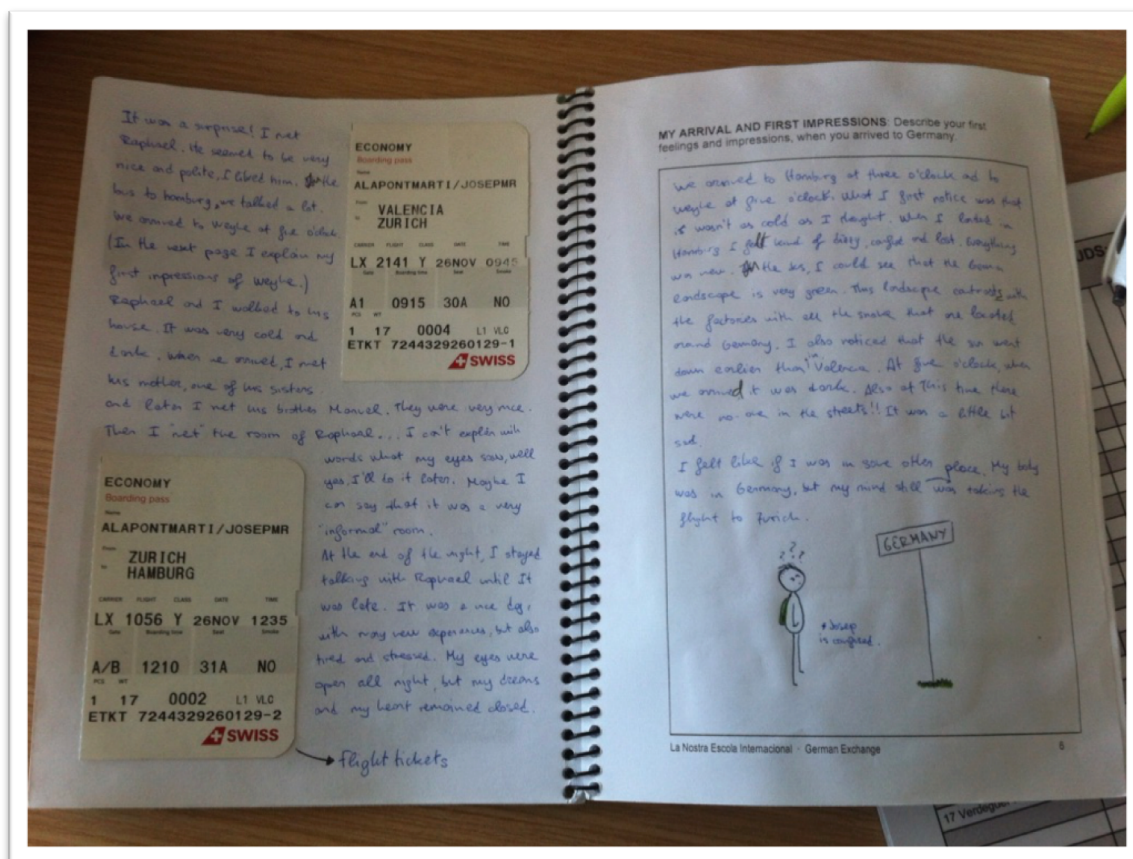 It was a surprise! I met
Raphael. He seemed to be very
nice and polite, I liked him. In the
bus to hamburg, we talked a lot.
We arrived to Weyhe at five o'clock.
(In the next page I explain my
first inpressions of Weyhe.)
Raphael and I walked to his
house. It was very cold and
dark. When we arrived, I met
his mother, one of his sisters
and later I met his brother Manuel. They were very nice.
Then I "met" the room of Raphael... I can't explain with
words what my eyes saw, well
yes, I'll do it later. Maybe I
can say that it was a very
"informal" room.
At the end of the night, I stayed
talking with Raphael until it
was late. It was a nice day,
with many new experiences, but also
tired and stressed. My eyes were
open all night, but my dreams
and my heart remained closed.
ECONOMY
Boarding pass
Name
ALAPONTMARTI/JOSEPMR
From
VALENCIA
to
ZURICH
CARRIER FLIGHT CLASS DATE TIME
LX 2141 Y 26NOV 0945
Gate Boarding time Seat Smoke
A1 0915 30A NO
PCS WT
1 17 0004 L1 VLC
ETKT 7244329260129-1
SWISS
ECONOMY
Boarding pass
Name
ALAPONTMARTI/JOSEPMR
From
ZURICH
to
HAMBURG
CARRIER FLIGHT CLASS DATE TIME
LX 1056 Y 26NOV 1235
Gate Boarding time Seat Smoke
A/B 1210 31A NO
PCS WT
1 17 0002 L1 VLC
ETKT 7244329260129-2
SWISS
flight tickets
MY ARRIVAL AND FIRST IMPRESSIONS: Describe your first
feelings and impressions, when you arrived to Germany.
We arrived to Hamburg at three o'clock and to
Weyhe at five o'clock. What I first notice was that
is wasn't as cold as I thought. When I landed in
Hamburg I felt kind of dizzy, and lost. Everything
was new. In the bus, I could see that the German
landscape is very green. This landscape contrasts with
the factories with all the smoke that are located
around Germany. I also noticed that the sun went
down earlier than in Valencia. At five o'clock when
we arrived it was dark. Also at This time there
were no-one in the streets!! It was a little bit
sad.
I felt like if I was in some other place. My body
was in Germany, but my mind still was taking the
flight to Zurich.
? ? ? ?
GERMANY
* Josep
is confused.
La Nostra Escola Internacional · German Exchange
6
UDS
17 Verdegue